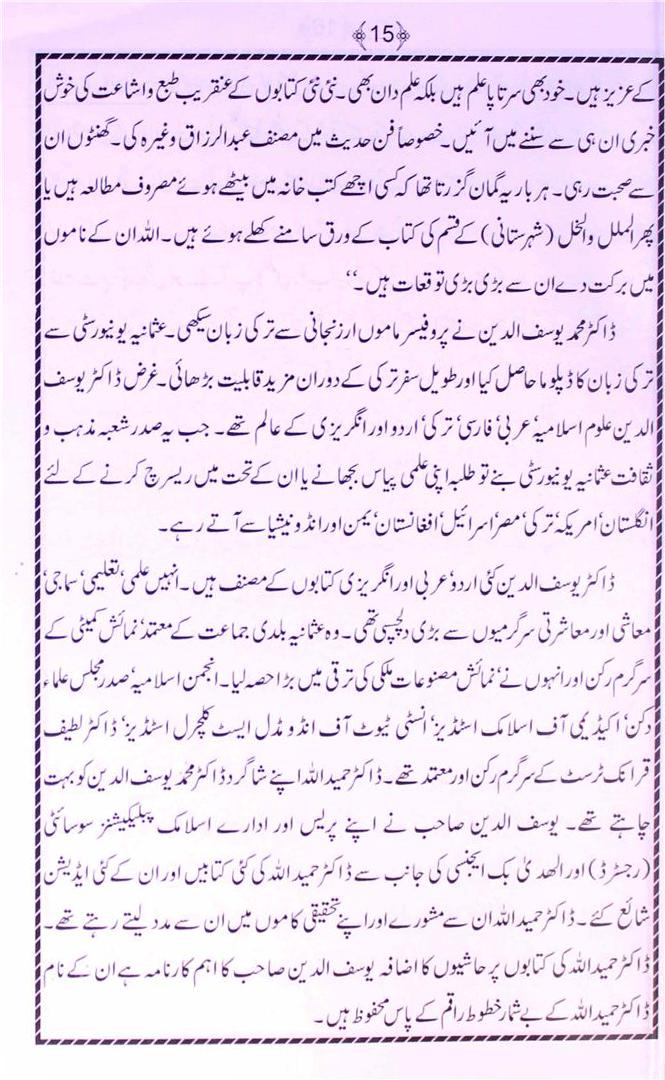 15
کے عزیز ہیں۔ خود بھی سرتاپا علم ہیں بلکہ علم دان بھی۔ نئی نئی کتابوں کے عنقریب طبع و اشاعت کی خوش
خبری ان ہی سے سننے میں آئیں۔ خصوصاً فن حدیث میں مصنف عبدالرزاق وغیرہ کی۔ گھنٹوں ان
سے صحبت رہی۔ ہر بار یہ گمان گزرتا تھا کہ کسی اچھے کتب خانہ میں بیٹھے ہوئے مصروف مطالعہ ہیں یا
پھر الملل والنحل (شہرستانی) کے قسم کی کتاب کے ورق سامنے کھلے ہوئے ہیں۔ اللہ ان کے ناموں
میں برکت دے ان سے بڑی بڑی توقعات ہیں۔‘‘
ڈاکٹر محمد یوسف الدین نے پروفیسر ماموں ارزنجانی سے ترکی زبان سیکھی۔ عثمانیہ یونیورسٹی سے
ترکی زبان کا ڈپلوما حاصل کیا اور طویل سفر ترکی کے دوران مزید قابلیت بڑھائی۔ غرض ڈاکٹر یوسف
الدین علوم اسلامیہ‘ عربی‘ فارسی‘ ترکی‘ اردو اور انگریزی کے عالم تھے۔ جب یہ صدر شعبہ مذہب و
ثقافت عثمانیہ یونیورسٹی بنے تو طلبہ اپنی علمی پیاس بجھانے یا ان کے تحت میں ریسرچ کرنے کے لئے
انگلستان‘ امریکہ‘ ترکی‘ مصر‘ اسرائیل‘ افغانستان‘ یمن اور انڈونیشیا سے آتے رہے۔
ڈاکٹر یوسف الدین کئی اردو‘ عربی اور انگریزی کتابوں کے مصنف ہیں۔ انہیں علمی‘ تعلیمی‘ سماجی‘
معاشی اور معاشرتی سرگرمیوں سے بڑی دلچسپی تھی۔ وہ عثمانیہ بلدی جماعت کے معتمد‘ نمائش کمیٹی کے
سرگرم رکن اور انہوں نے ’نمائش مصنوعات ملکی کی ترقی میں بڑا حصہ لیا۔ انجمن اسلامیہ‘ صدر مجلس علماء
دکن‘ اکیڈیمی آف اسلامک اسٹڈیز‘ انسٹی ٹیوٹ آف انڈو مڈل ایسٹ کلچرل اسٹڈیز‘ ڈاکٹر لطیف
قرانک ٹرسٹ کے سرگرم رکن اور معتمد تھے۔ ڈاکٹر حمید اللہ اپنے شاگرد ڈاکٹر محمد یوسف الدین کو بہت
چاہتے تھے۔ یوسف الدین صاحب نے اپنے پریس اور ادارے اسلامک پبلیکیشنز سوسائٹی
(رجسٹرڈ) اور الھدیٰ بک ایجنسی کی جانب سے ڈاکٹر حمید اللہ کی کئی کتابیں اور ان کے کئی ایڈیشن
شائع کئے۔ ڈاکٹر حمید اللہ ان سے مشورے اور اپنے تحقیقی کاموں میں ان سے مدد لیتے رہتے تھے۔
ڈاکٹر حمید اللہ کی کتابوں پر حاشیوں کا اضافہ یوسف الدین صاحب کا اہم کارنامہ ہے ان کے نام
ڈاکٹر حمید اللہ کے بے شمار خطوط راقم کے پاس محفوظ ہیں۔